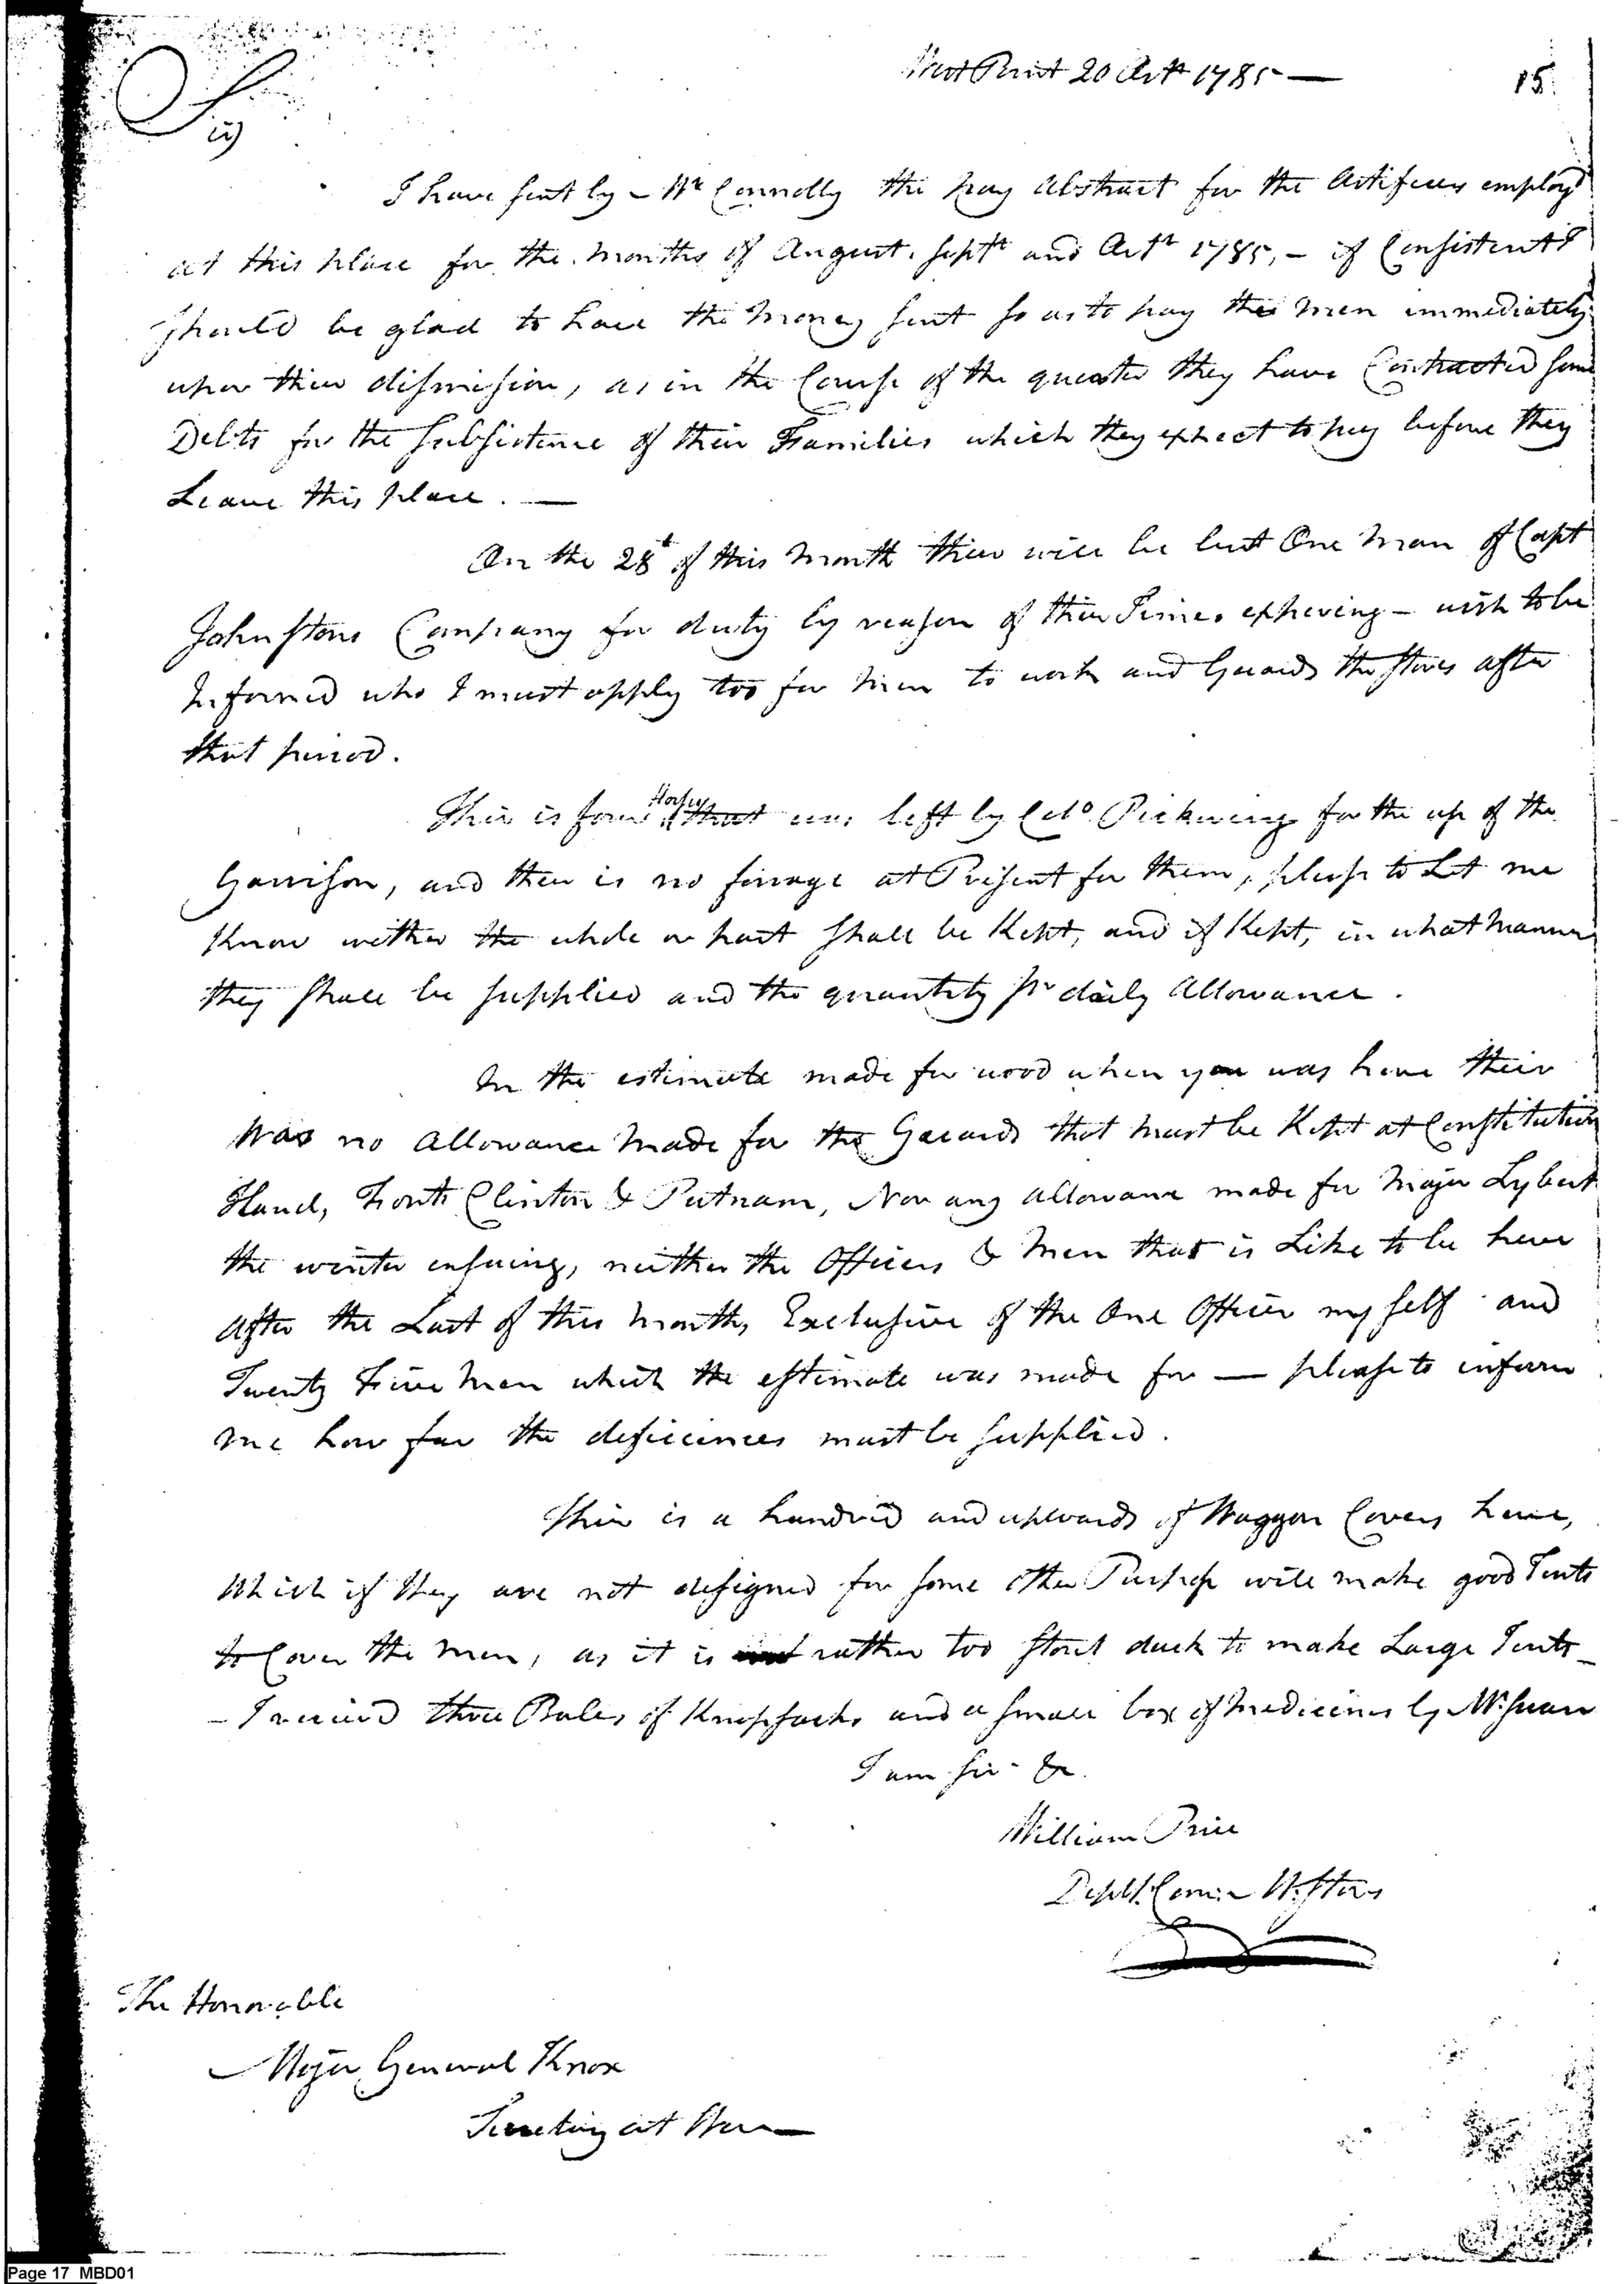 West Point 20 Octr 1785 —
15
Sir
I have sent by Mr Connolly the pay Abstract for the Artificers employd
at this place for the months of August, Septr and Octr 1785, – if Consistent I
should be glad to have the money sent so as to pay the men immediately
upon their dismission, as in the Course of the quarter they have Contracted some
Debts for the Subsistence of their Families which they expect to pay before they
Leave this place. —
On the 28t of this Month their will be but One Man of Capt
Johnstons Company for duty by reason of their Times expireing – wish to be
Informed who I must apply too for men to work and Guard the stores after
that period.
Their is four Horses that was left by Colo. Pickering for the use of the
Garrison, and their is no forrage at Present for them, please to Let me
Know wether the whole or part shall be Kept, and if Kept, in what manner
they shall be supplied and the quantity pr daily Allowance.
In the estimate made for wood when you was here their
was no Allowance made for the Guards that must be Kept at Constitution
Iland, Forts Clinton & Putnam, Nor any allowance made for Major Lybert
the winter ensuing, neither the Officers & Men that is Like to be here
After the Last of this Month, Exclusive of the One Officer my self and
Twenty Five Men which the estimate was made for — please to inform
me how far the deficiences must be supplied.
Their is a hundred and upwards of Waggon Covers here,
Which if they are not designed for some other Purpose will make good Tents
to Cover the men, as it is rather too stout duck to make Large Tents –
– I received three Bales of Knapsacks and a small box of Medicines by Mr. Swan
I am Sir &c.
William Price
Depty. Comr M. Stores
The Honorable
Major General Knox
Secretary at War —
Page 17 MBD01